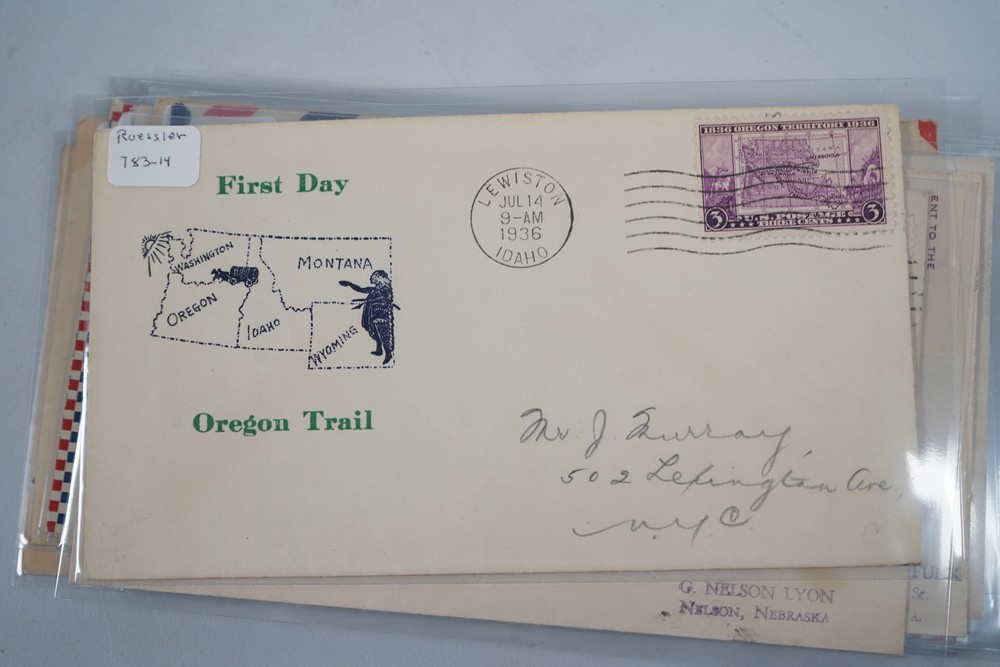 Ruessler
783-14
First Day
WASHINGTON
MONTANA
OREGON
IDAHO
WYOMING
Oregon Trail
LEWISTON
JUL 14
9-AM
1936
IDAHO
1836 OREGON TERRITORY 1936
MISSOULA
3 U.S. POSTAGE 3
THREE CENTS
Mr J. Murray,
502 Lexington Ave.,
N.Y.C.
ENT TO THE
G. NELSON LYON
NELSON, NEBRASKA
St.